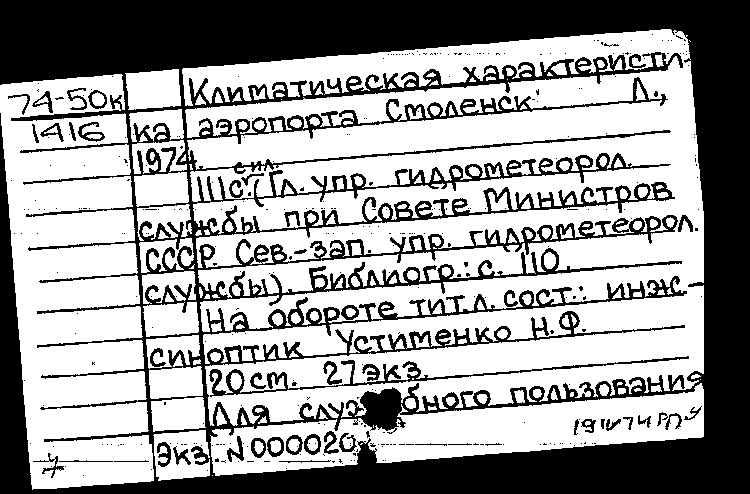 74-50к
1416
Климатическая характеристи-
ка аэропорта Смоленск. Л.,
1974.
111с. с ил. (Гл. упр. гидрометеорол.
службы при Совете Министров
СССР. Сев.-зап. упр. гидрометеорол.
службы). Библиогр.: с. 110.
На обороте тит.л. сост.: инж.-
синоптик Устименко Н.Ф.
20 ст. 27 экз.
Для служебного пользования
Экз. N 000020